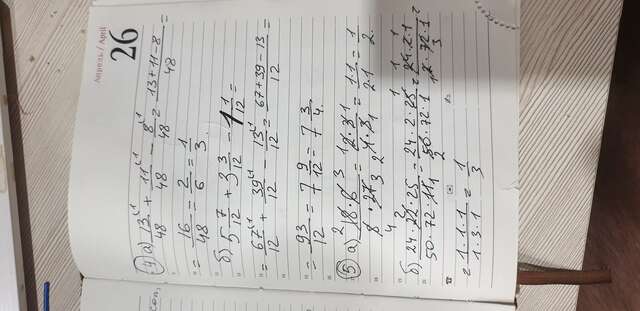 Апрель / April
26
4 а) 13/48 + 11/48 - 8/48 = (13+11-8)/48 =
= 16/48 = 2/6 = 1/3.
б) 5 7/12 + 3 3/12 - 1 1/12 =
= 67/12 + 39/12 - 13/12 = (67+39-13)/12 =
= 93/12 = 7 9/12 = 7 3/4.
5 а) (18·6)/(8·27) = (2·3)/(4·3) = (1·1)/(2·1) = 1/2.
б) (24·22·25)/(50·72·11) = (24·2·25)/(50·72·1) = (24·2·1)/(2·72·1) =
= (1·1·1)/(1·3·1) = 1/3